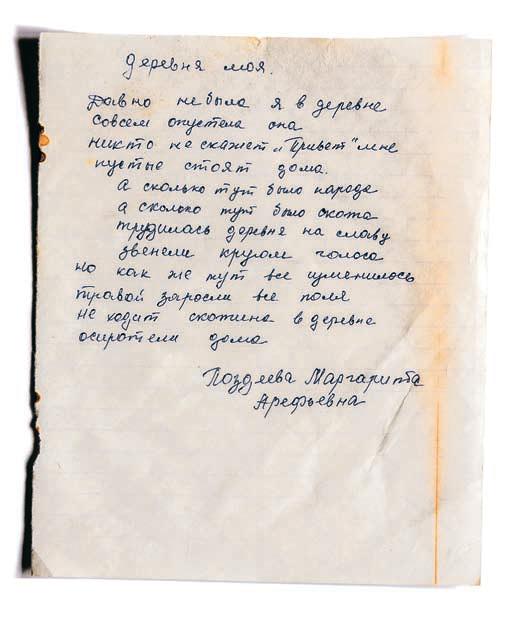 деревня моя.
Давно не была я в деревне
совсем опустела она
никто не скажет „Привет" мне
пустые стоят дома.
а сколько тут было народа
а сколько тут было скота
трудилась деревня на славу
звенели кругом голоса
но как же тут все изменилось
травой заросли все поля
не ходит скотина в деревне
осиротели дома
Поздеева Маргарита
Арефьевна